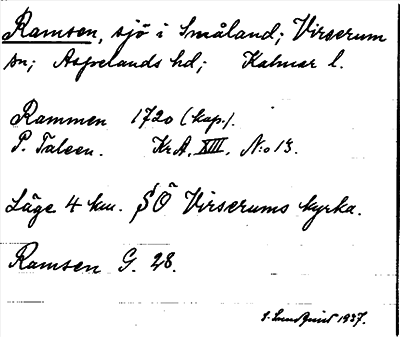 Ramsen, sjö i Småland; Virserum
sn; Aspelands hd; Kalmar l.
Rammen 1720 (kop.).
P. Taleen. Kr A. XIII. N:o 13.
Läge 4 km. SÖ Virserums kyrka.
Ramsen G. 28.
S. Lundquist 1937.